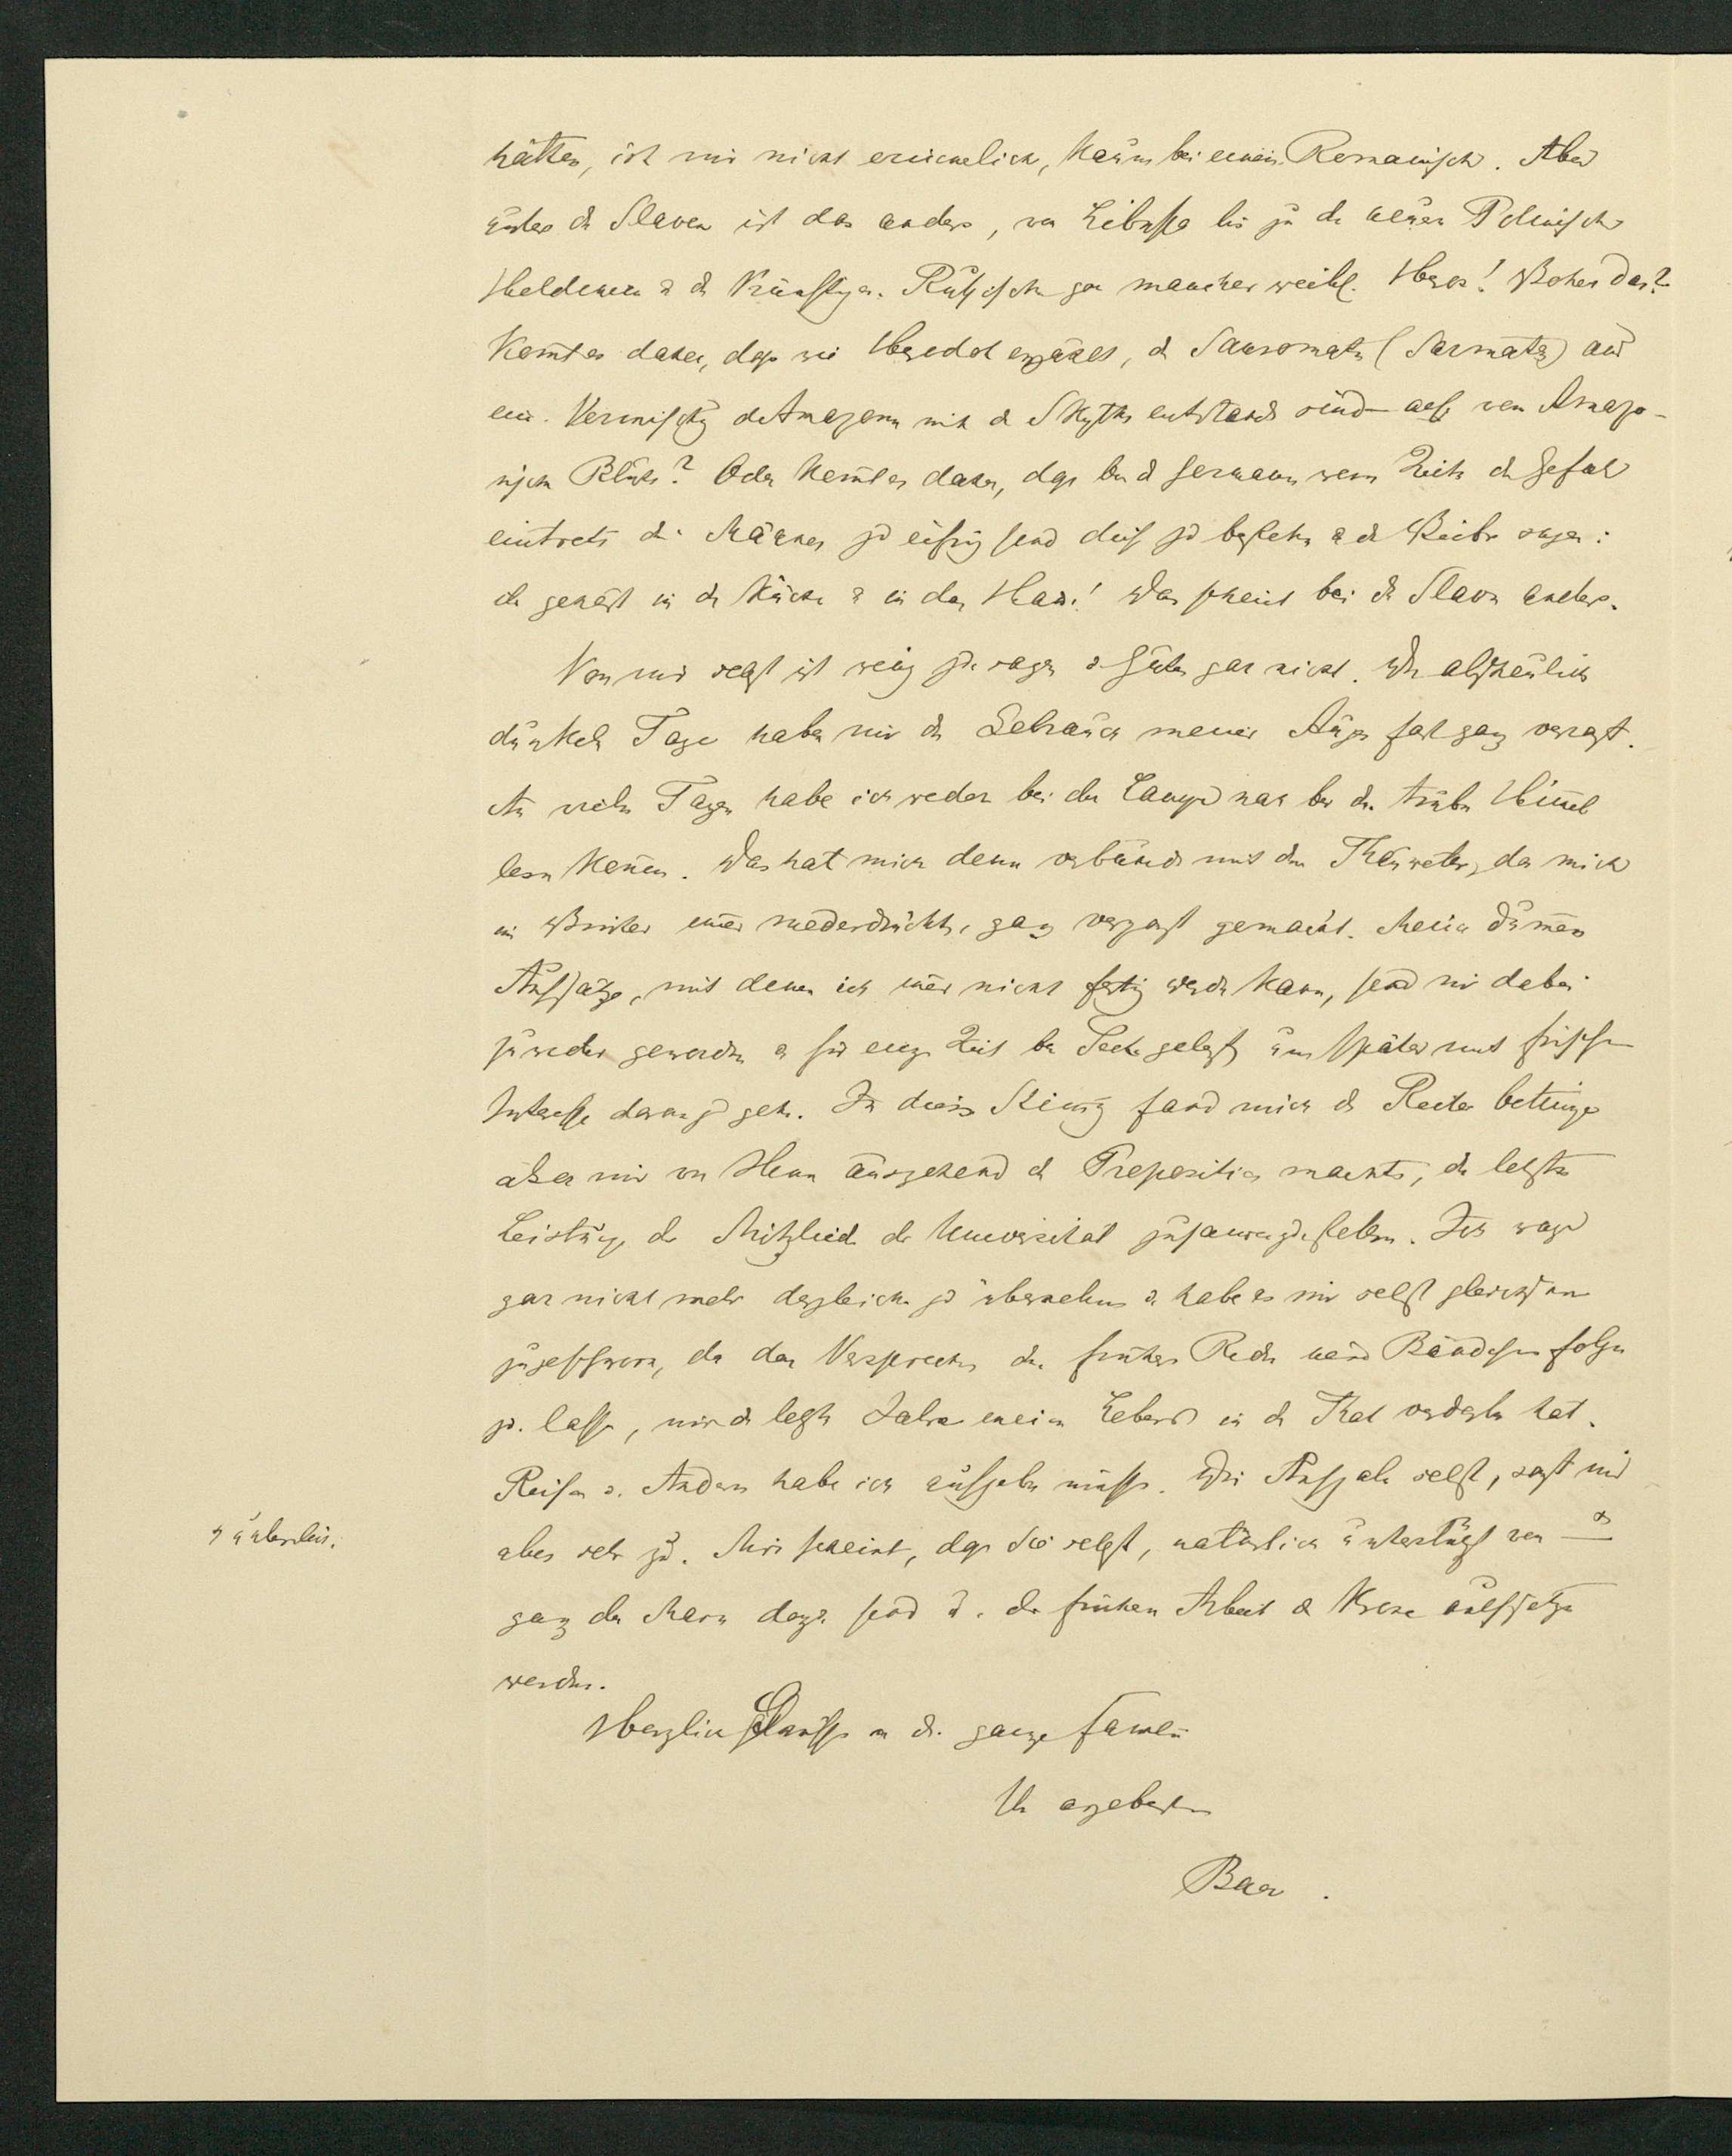 hätten, ist mir nicht erinnerlich, kaum bei einem Romanischen. Aber
unter den Slaven ist das anders, von Libussa bis zu den neuen Polnischen
Heldinnen u die Russischen gar mancher weibl. Heros! Woher das?
Kommt es daher, dass wie Herodot erzählt, die Sauromaten (Sarmaten) aus
ein. Vermischung der Amazonen mit den Skythen entstanden sind – also von Amazo-
nischem Blute? Oder kommt es daher, dass bei den Germanen wenn Zeiten der Gefahr
eintreten die Männer so eifrig sind diese zu bestehen u den Weibern sagen:
du gehörst in die Küche u in das Haus! Das scheint bei den Slaven anders.
Von mir selbst ist wenig zu sagen u Gutes gar nicht. Die abscheulich
dunkeln Tage haben mir den Gebrauch meiner Augen fast ganz versagt.
An vielen Tagen habe ich weder bei der Lampe noch bei dem trüben Himmel
lesen können. Das hat mich denn verbunden mit dem Thauwetter, das mich
im Winter immer niederdrückt, ganz verzagt gemacht. Meine dummen
Aufsätze, mit denen ich immer nicht fertig werden kann, sind mir dabei
zuwider geworden u für einige Zeit bei Seite gelegt um später mit frischem
Interesse daran zu gehn. In dieser Stimmung fand mich der Rector
als er mir von Ihnen ausgehend die Proposition machte, die letzten
Leistungen der Mitglieder der Universität zusammenzustellen. Ich wage
gar nicht mehr dergleichen zu übernehmen u habe es mir selbst gleichsam
zugeschworen, da das Versprechen den frühern Reden neue Bändchen folgen
zu lassen, mir die letzten Jahre meines Lebens in der That verdorben hat.
Reisen u. Anders habe ich aufgeben müssen. Die Aufgabe selbst, sagt mir
aber sehr zu. Mir scheint, dass Sie selbst, natürlich unterstützt von
ganz der Mann dazu sind u. der frühern Arbeit die Krone aufsetzen
werden.
Herzliche Grüsse an die ganze Familie
Ihr ergebenster
Baer.